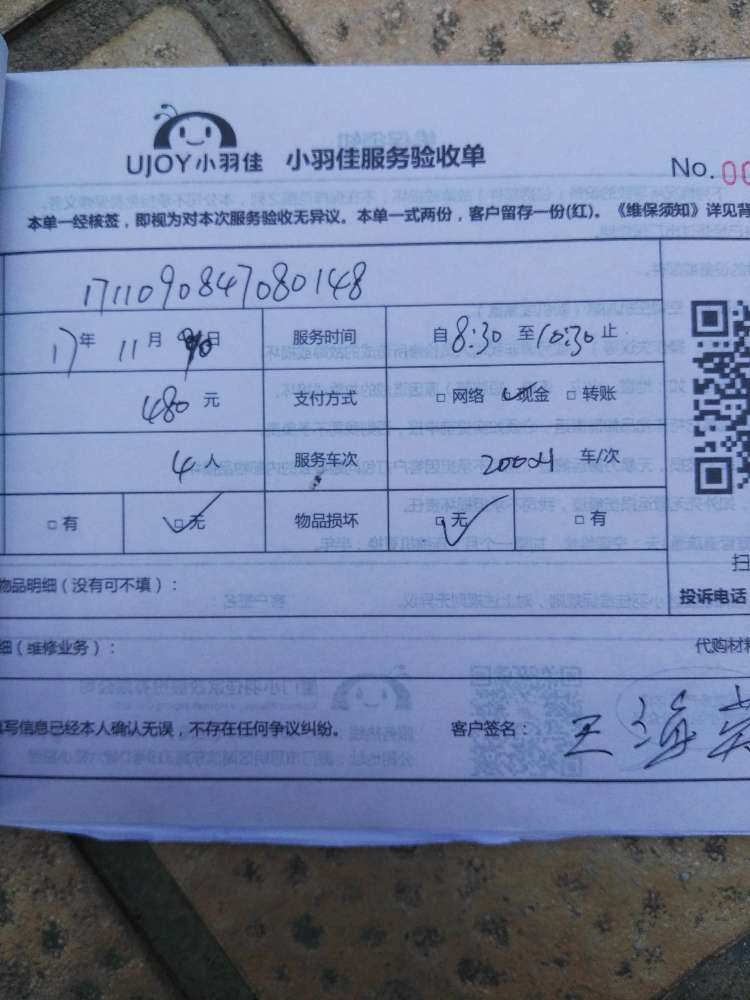 UJOY小羽佳 小羽佳服务验收单
No.00
本单一经核签，即视为对本次服务验收无异议。本单一式两份，客户留存一份(红)。《维保须知》详见背
1711090847080148
17年 11月 日 服务时间 自8:30 至10:30止
480元 支付方式 □网络 □现金 □转账
4人 服务车次 车/次
□有 □无 物品损坏 □无 □有
物品明细（没有可不填）：
扫
投诉电话
细（维修业务）：
代购材料
填写信息已经本人确认无误，不存在任何争议纠纷。 客户签名：王海英